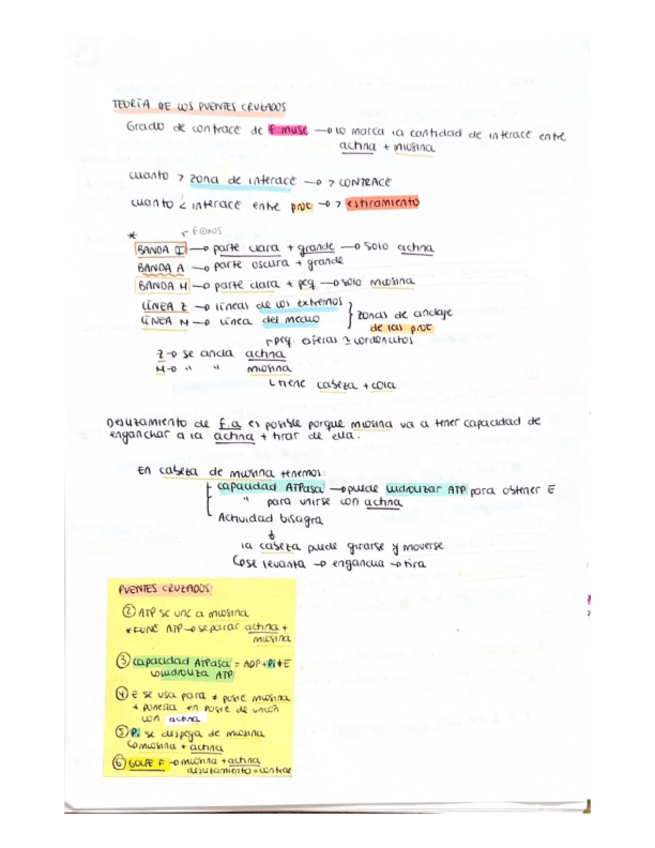 TEORÍA DE LOS PUENTES CRUZADOS
Grado de contracc de F musc → lo marca la cantidad de interacc entre
actina + miosina
cuanto > zona de interacc → > CONTRACC
cuanto < interacc entre prot → > estiramiento
*
BANDA I → parte clara + grande → solo actina
BANDA A → parte oscura + grande
BANDA H → parte clara + peq → solo miosina
LÍNEA Z → líneas de los extremos
LÍNEA M → línea del medio
zonas de anclaje
de las prot
Z → se ancla actina
M → " " miosina
↳ tiene cabeza + cola
Deslizamiento de F.a es posible porque miosina va a tener capacidad de
enganchar a la actina + tirar de ella.
En cabeza de miosina tenemos:
capacidad ATPasa → puede hidrolizar ATP para obtener E
" para unirse con actina
Actividad bisagra
↓
la cabeza puede girarse y moverse
↳ se levanta → engancha → tira
PUENTES CRUZADOS
② ATP se une a miosina
* FUNC ATP → separar actina +
miosina
③ capacidad ATPasa = ADP + Pi + E
↳ hidroliza ATP
④ E se usa para ≠ posic miosina
+ ponerla en posic de unión
con actina
⑤ Pi se despega de miosina
↳ miosina + actina
⑥ GOLPE F → miosina + actina
deslizamiento = contrac